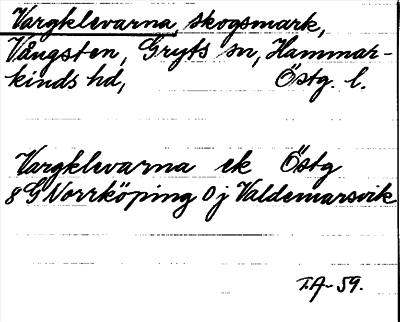 Vargklevarna, skogsmark,
Vångsten, Gryts sn, Hammar-
kinds hd, Östg. l.
Vargklevarna ek Östg
8 G Norrköping 0 j Valdemarsvik
T.A-59.